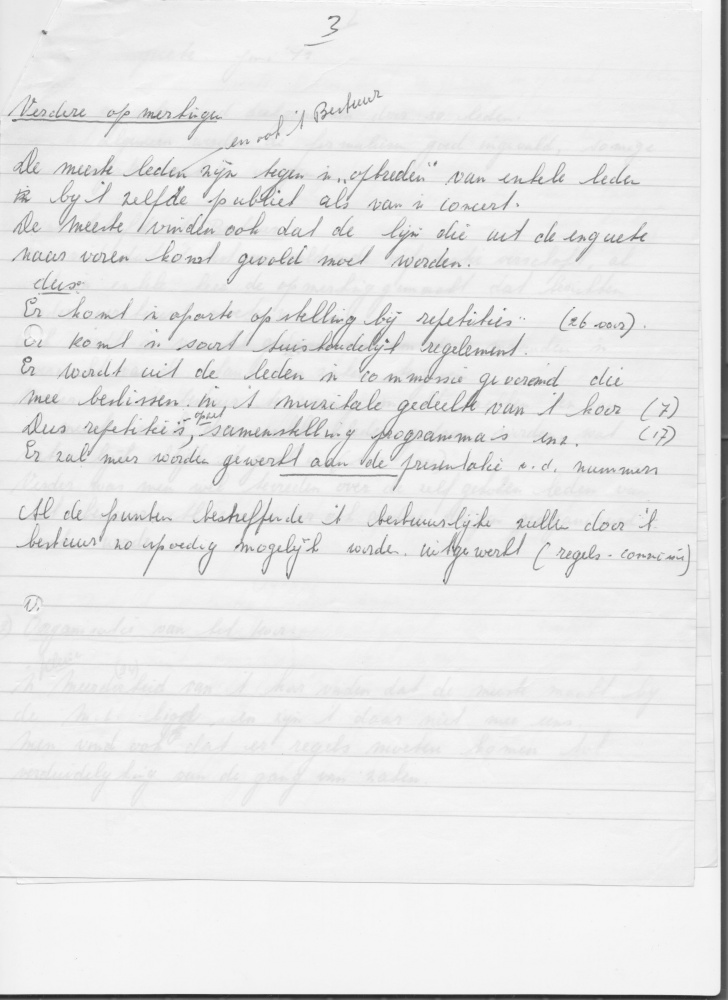 3
Verdere opmerkingen
en ook 't Bestuur
De meeste leden zijn tegen 'n "optreden" van enkele leden
bij 't zelfde publiek als van 'n concert.
De meeste vinden ook dat de lijn die uit de enquete
naar voren komt gevold moet worden.
dus:
Er komt 'n aparte opstelling bij repetities (26 voor).
Er komt 'n soort huishoudelijk regelement.
Er wordt uit de leden 'n commissie gevormd die
mee beslissen in 't muzikale gedeelte van 't koor (7)
Dus repetitie's, samenstelling programma's enz. (17)
Er zal meer worden gewerkt aan de presentatie v.d. nummers
Al de punten betreffende 't bestuurlijke zullen door 't
bestuur zo spoedig mogelijk worden uitgewerkt (regels-commissie)